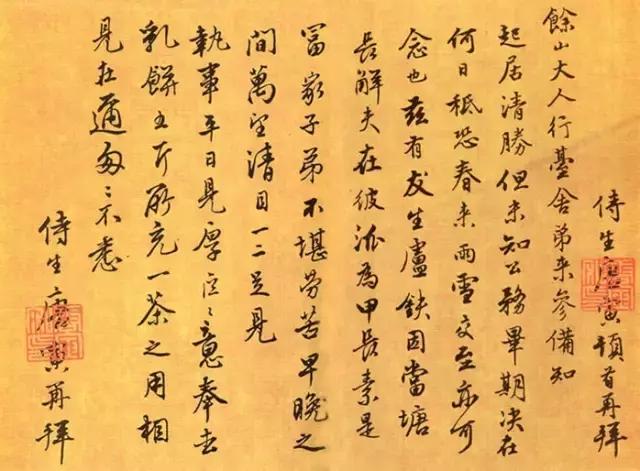 侍生唐寅頓首再拜
餘山大人行臺舍弟來參備知
起居清勝但未知公務畢期決在
何日秪恐春來雨雪交至亦可
念也茲有友生盧鈇因當塘
長解夫在彼派為甲長素是
冨家子弟不堪勞苦早晚之
間萬望清目一二足見
執事平日見厚區〻意奉去
乳餅五斤所充一茶之用相
見在邇匆〻不悉
侍生唐寅再拜